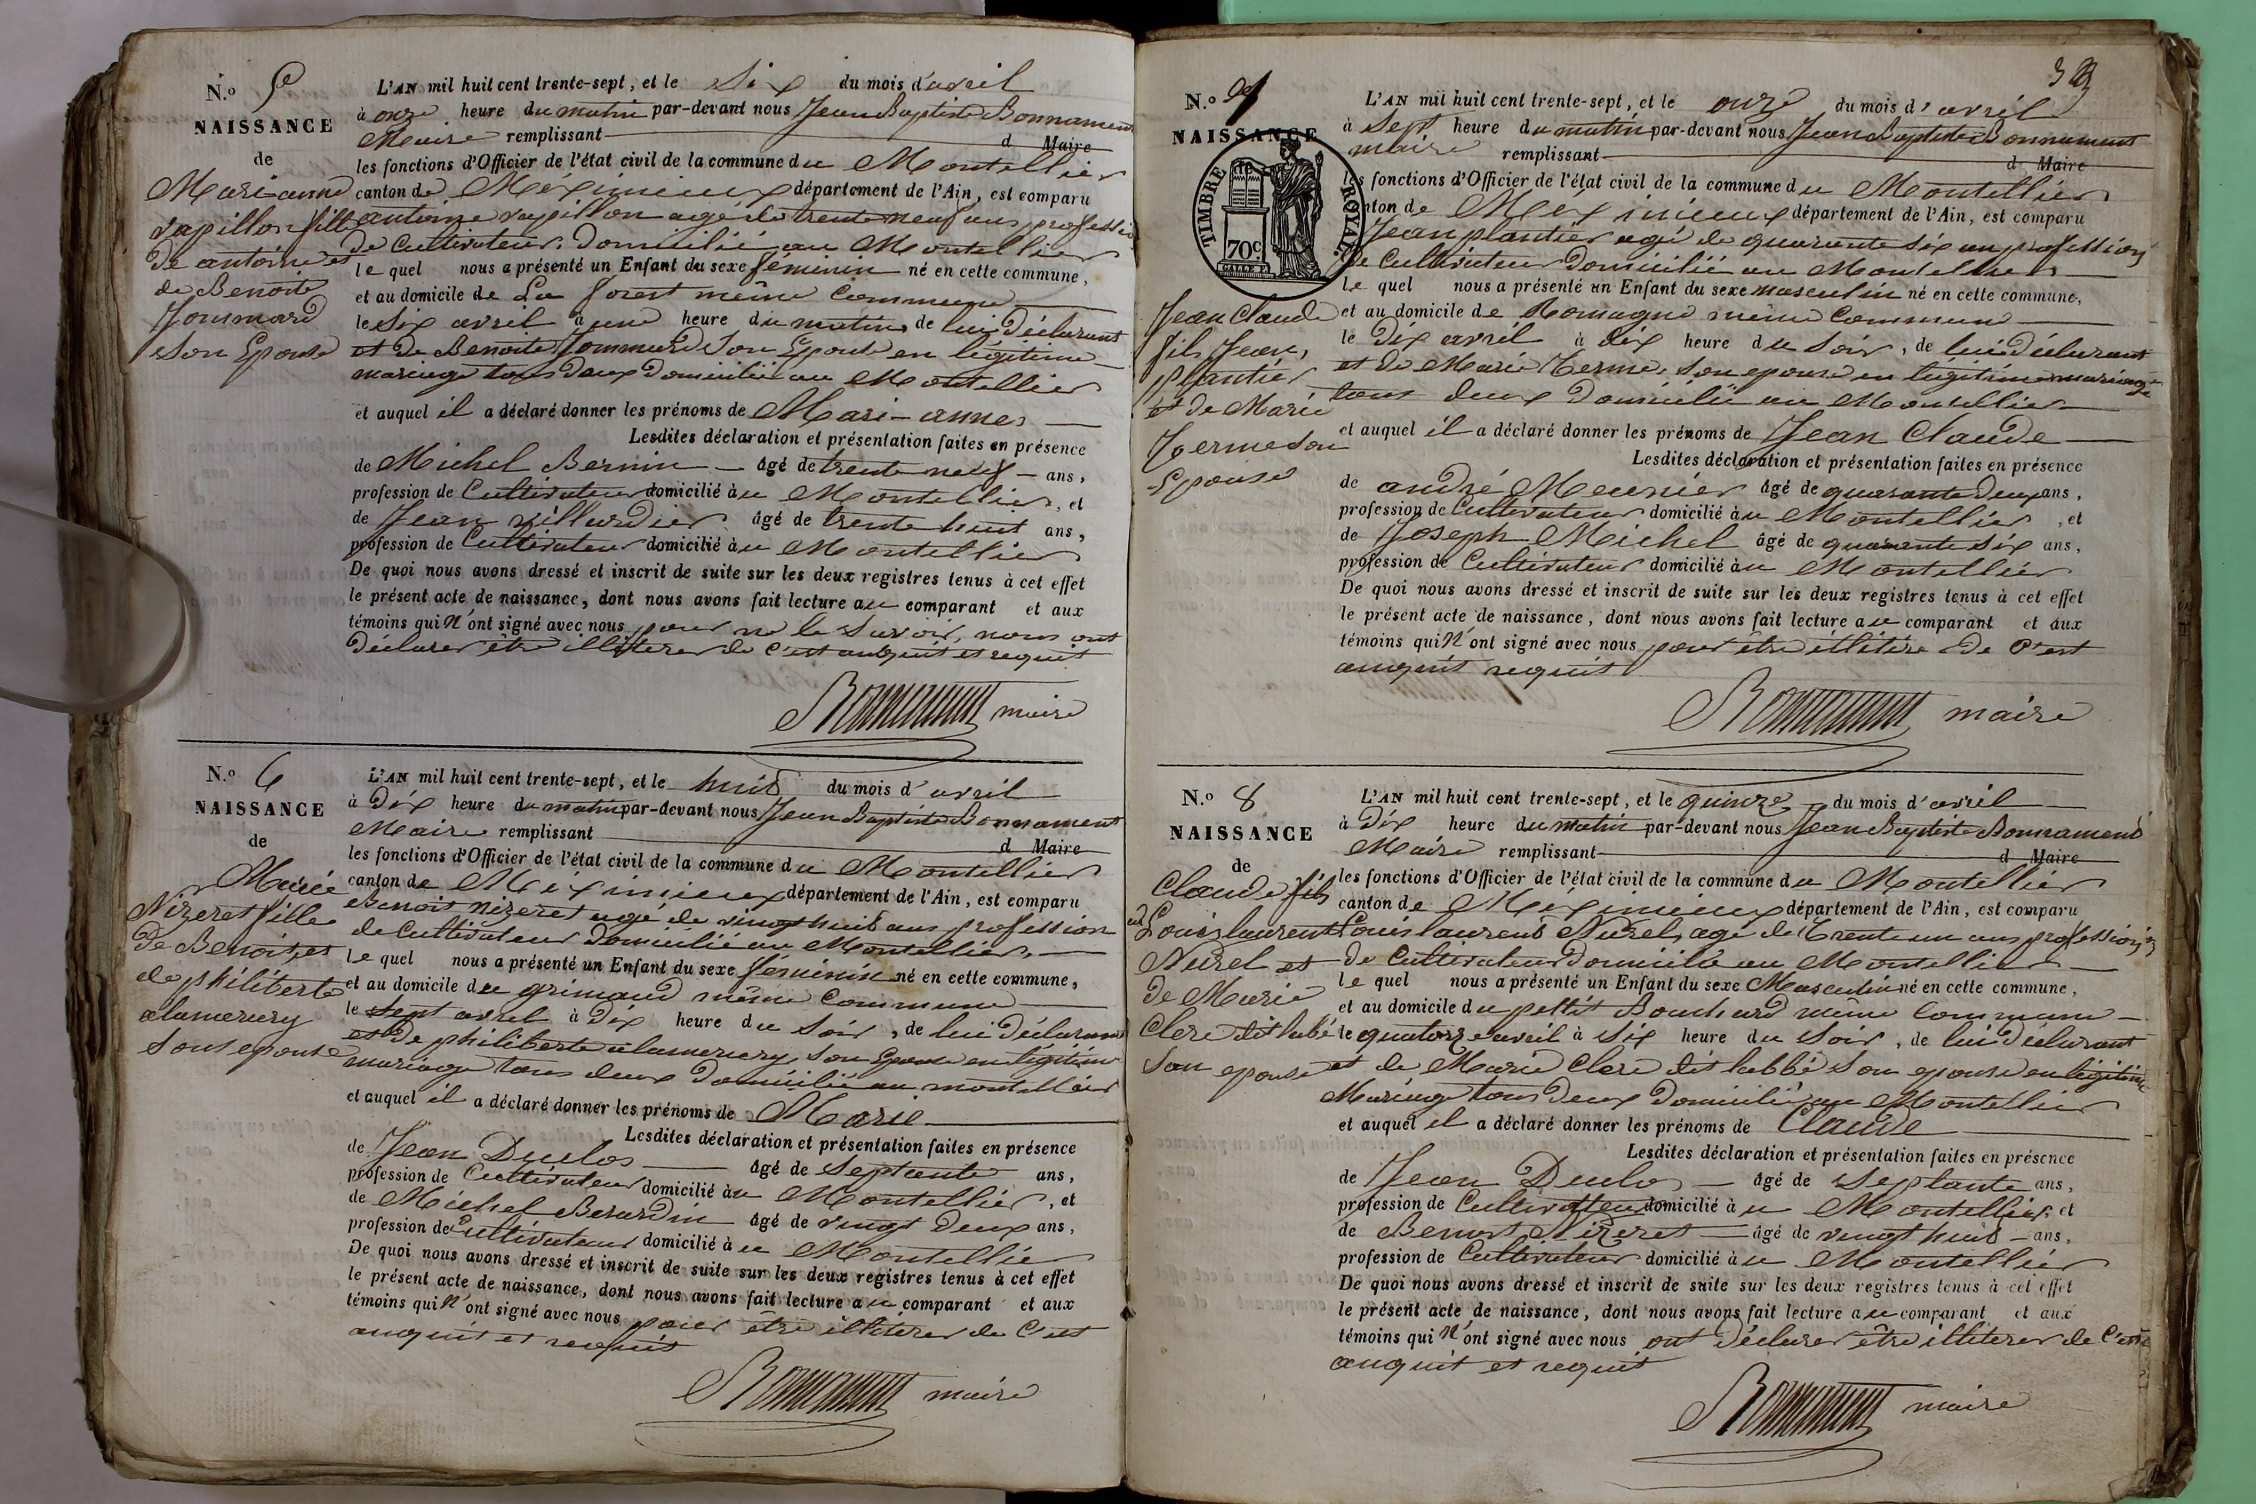 N.o 5
NAISSANCE
de
Mari-anne
Papillon fille
de antoine et
de Benoite
Jommard
Son Epouse
L'AN mil huit cent trente-sept, et le Six du mois d'avril
à onze heure du matin par-devant nous Jean Baptiste Bonnament
Maire remplissant d Maire
les fonctions d'Officier de l'état civil de la commune du Montellier
canton de Méximieux département de l'Ain, est comparu
antoine Papillon agé de trente neuf ans profession
de Cultivateur Domicilié au Montellier
le quel nous a présenté un Enfant du sexe féminin né en cette commune,
et au domicile de La forest même Commune
le Six avril à une heure du matin de lui Déclarant
et de Benoite Jommard Son Epouse en légitime
mariage tous Deux Domicilié au Montellier
et auquel il a déclaré donner les prénoms de Mari-anne
Lesdites déclaration et présentation faites en présence
de Michel Bernin âgé de trente neuf ans,
profession de Cultivateur domicilié au Montellier, et
de Jean villardier âgé de trente huit ans,
profession de Cultivateur domicilié au Montellier
De quoi nous avons dressé et inscrit de suite sur les deux registres tenus à cet effet
le présent acte de naissance, dont nous avons fait lecture au comparant et aux
témoins qui n'ont signé avec nous pour ne le Savoir, nous ont
Déclarer être illiterer de C'est anquit et requit
Bonnament maire
N.o 6
NAISSANCE
de
Marie
Nizeret fille
De Benoit et
de philiberte
alamercery
Sont epouse
L'AN mil huit cent trente-sept, et le huit du mois d'avril
à Dix heure du matin par-devant nous Jean Baptiste Bonnament
Maire remplissant d Maire
les fonctions d'Officier de l'état civil de la commune du Montellier
canton de Méximieux département de l'Ain, est comparu
Benoit Nizeret agé de vingt huit ans profession
de Cultivateur Domicilié au Montellier
le quel nous a présenté un Enfant du sexe féminin né en cette commune,
et au domicile du grimaud même Commune
le Sept avril à Dix heure du Soir, de lui Déclarant
et De philiberte alamercery, son Epouse en légitime
mariage tous deux Domicilié au montellier
et auquel il a déclaré donner les prénoms de Marie
Lesdites déclaration et présentation faites en présence
de Jean Duclos âgé de Septante ans,
profession de Cultivateur domicilié au Montellier, et
de Michel Berardin âgé de vingt Deux ans,
profession de Cultivateur domicilié au Montellier
De quoi nous avons dressé et inscrit de suite sur les deux registres tenus à cet effet
le présent acte de naissance, dont nous avons fait lecture au comparant et aux
témoins qui n'ont signé avec nous pour être illiterer de C'est
anquit et requit
Bonnament maire
N.o
NAISSANCE
de
TIMBRE ROYAL
70c.
Jean Claude
fils Jean,
plantier
et de Marie
Terme Son
Epouse
L'AN mil huit cent trente-sept, et le onze du mois d'avril
à Sept heure du matin par-devant nous Jean Baptiste Bonnament
maire remplissant d Maire
les fonctions d'Officier de l'état civil de la commune du Montellier
canton de Meximieux département de l'Ain, est comparu
Jean plantier agé de quarante six an profession
De Cultivateur Domicilié au Montellier
le quel nous a présenté un Enfant du sexe masculin né en cette commune,
et au domicile de Romagne même Commune
le Dix avril à dix heure du Soir, de lui Déclarant
et de Marie Terme, son epouse en légitime mariage
tous deux Domicilié au Montellier
et auquel il a déclaré donner les prénoms de Jean Claude
Lesdites déclaration et présentation faites en présence
de andré Meunier âgé de quarante Deux ans,
profession de Cultivateur domicilié au Montellier, et
de Joseph Michel âgé de quarante Six ans,
profession de Cultivateur domicilié au Montellier
De quoi nous avons dressé et inscrit de suite sur les deux registres tenus à cet effet
le présent acte de naissance, dont nous avons fait lecture au comparant et aux
témoins qui n'ont signé avec nous pour être illitere De C'est
anquit requit
Bonnament maire
N.o 8
NAISSANCE
de
Claude fils
Louis laurent
Nurel et
de Marie
Clerc dit labbé
Son epouse
L'AN mil huit cent trente-sept, et le quinze du mois d'avril
à Dix heure du matin par-devant nous Jean Baptiste Bonnament
Maire remplissant d Maire
les fonctions d'Officier de l'état civil de la commune du Montellier
canton de Méximieux département de l'Ain, est comparu
Louis laurent Nurel, agé de Trente un ans profession
de Cultivateur Domicilié au Montellier
le quel nous a présenté un Enfant du sexe Masculin né en cette commune,
et au domicile du pettit Bouchard même Commune
le quatorze avril à Six heure du Soir, de lui Déclarant
et de Marie Clerc dit labbé Son epouse en légitime
Mariage tous Deux Domicilié au Montellier
et auquel il a déclaré donner les prénoms de Claude
Lesdites déclaration et présentation faites en présence
de Jean Duclos âgé de Septante ans,
profession de Cultivateur domicilié au Montellier, et
de Benoit Nizeret âgé de vingt huit ans,
profession de Cultivateur domicilié au Montellier
De quoi nous avons dressé et inscrit de suite sur les deux registres tenus à cet effet
le présent acte de naissance, dont nous avons fait lecture au comparant et aux
témoins qui n'ont signé avec nous ont Déclarer être illiterer de C'est
anquit et requit
Bonnament maire